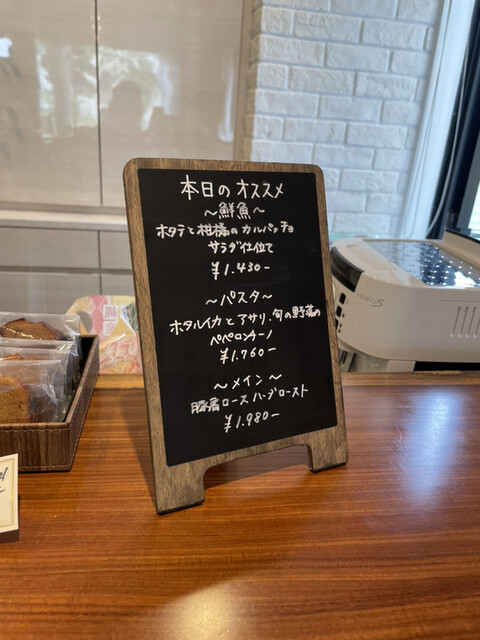 本日のオススメ
～鮮魚～
ホタテと柑橘のカルパッチョ
サラダ仕立て
¥1.430-
～パスタ～
ホタルイカとアサリ、旬の野菜の
ペペロンチーノ
¥1.760-
～メイン～
豚肩ロースハーブロースト
¥1.980-